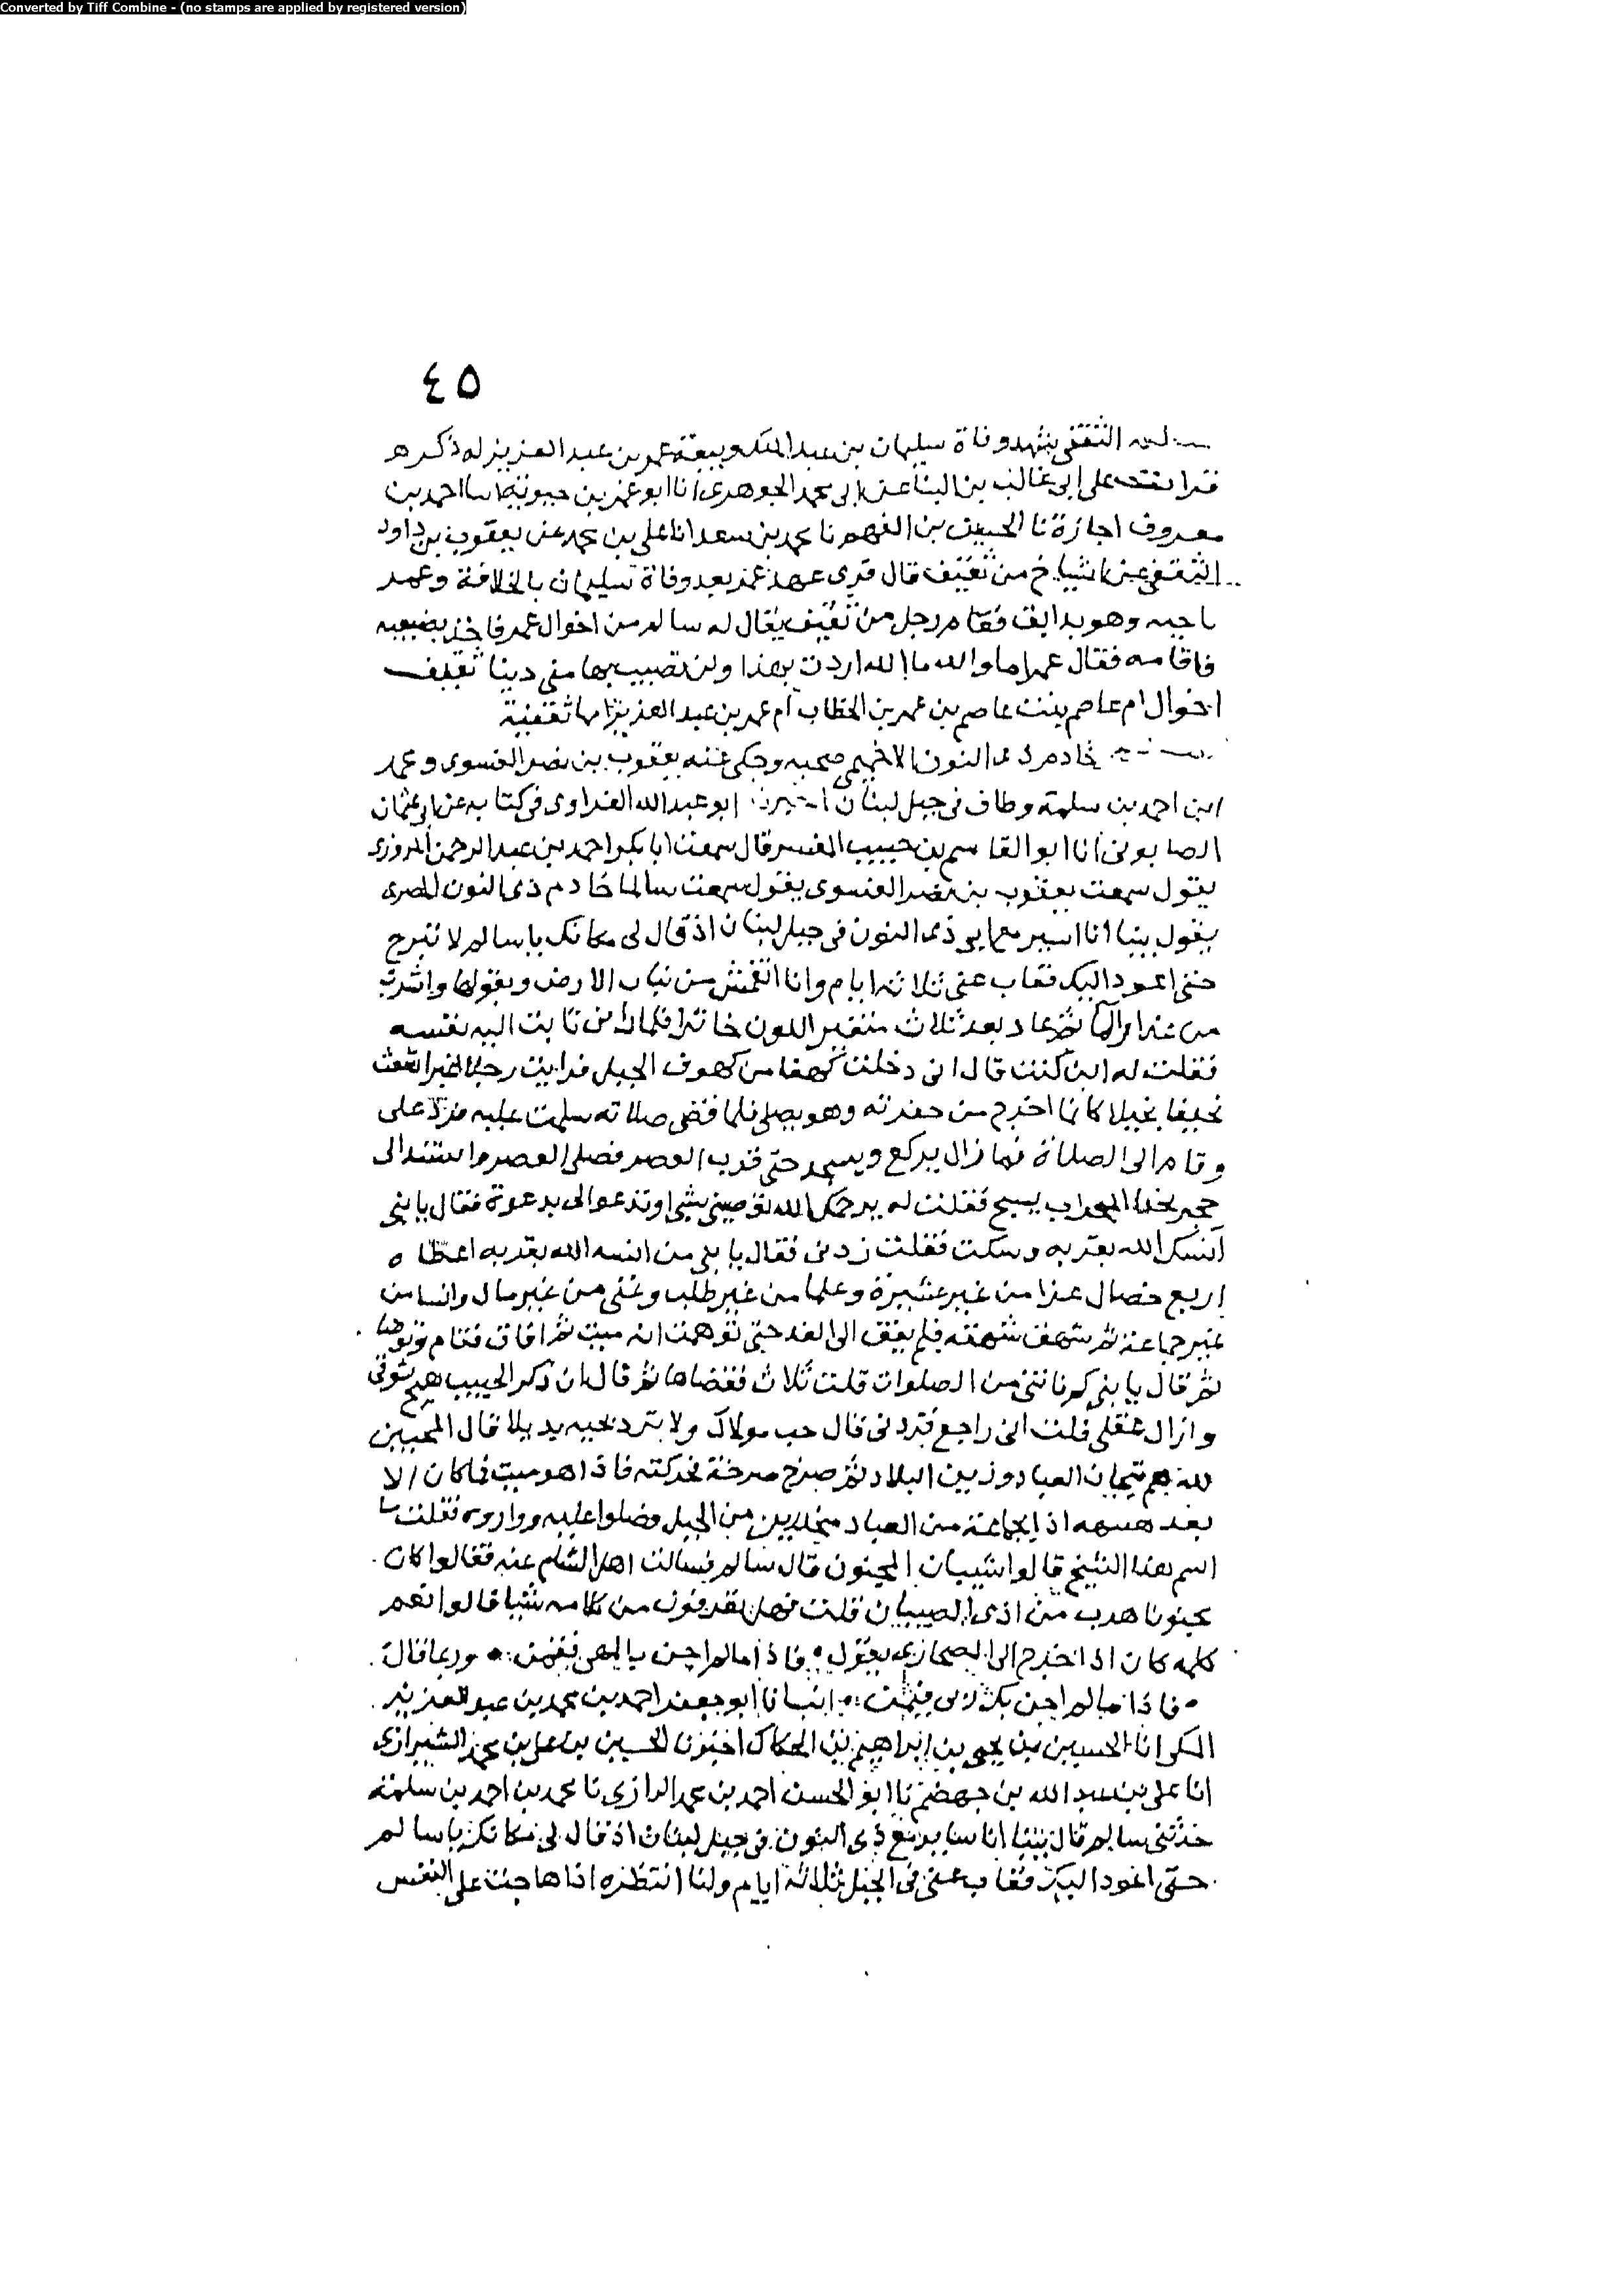 Converted by Tiff Combine - (no stamps are applied by registered version)
٤٥
الثقفي شهد وفاة سليمان بن عبد الملك وبيعة عمر بن عبد العزيز له ذكر ه
قرات على ابي غالب بن البنا عن ابي محمد الجوهري انا ابو عمر بن حيويه انا احمد بن
معروف اجازة نا الحسين بن الفهم نا محمد بن سعد انا علي بن محمد عن يعقوب بن داود
الثقفي عن اشياخ من ثقيف قال قري عهد عمر بعد وفاة سليمان بالخلافة وعمر
ناحيه وهو بدابق فقام رجل من ثقيف يقال له سالم من اخوال عمر فاخذ بضبعيه
فاقامه فقال عمر اما والله ما الله اردت بهذا ولن تصيب بها مني دينا ثقيف
اخوال ام عاصم بنت عاصم بن عمر بن الخطاب ام عمر بن عبد العزيز امها ثقفية
خادم ذي النون الاخميمي صحبه وحكى عنه يعقوب بن نصر الفسوي و محمد
ابن احمد بن سلمة وطاف في جبل لبنان اخبرنا ابو عبد الله الفراوي في كتابه عن ابي عثمان
الصابوني انا ابو القاسم بن حبيب المفسر قال سمعت ابا بكر احمد بن عبد الرحمن المروزي
يقول سمعت يعقوب بن نصر الفسوي يقول سمعت سالما خادم ذي النون المصري
يقول بينا انا اسير مع ذي النون في جبل لبنان اذ قال لي مكانك يا سالم لا تبرح
حتى اعود اليك فغاب عني ثلاثة ايام وانا اتقمش من نبات الارض وبقولها واشرب
من غدرانها ثم عاد بعد ثلاث متغير اللون خاثرا فلما راني ثابت اليه نفسه
فقلت له اين كنت قال اني دخلت كهفا من كهوف الجبل فرايت رجلا اغبر اشعث
نحيفا نحيلا كانما اخرج من حفرته وهو يصلي فلما قضى صلاته سلمت عليه فرد على
وقام الى الصلاة فما زال يركع ويسجد حتى قرب العصر فصلى العصر واستند الى
حجر بحذا المحراب يسبح فقلت له يرحمك الله توصيني بشي او تدعو الي بدعوة فقال يا بني
انسك الله بقربه وسكت فقلت زدني فقال يا بني من انسه الله بقربه اعطاه
اربع خصال عزا من غير عشيرة وعلما من غير طلب وغنى من غير مال وانسا من
غير جماعة ثم شهق شهقة فلم يفق الى الغد حتى توهمت انه ميت ثم افاق فقام وتوضا
ثم قال يا بني كم فاتني من الصلوات قلت ثلاث فقضاها ثم قال ان ذكر الحبيب هيج شوقي
وازال عقلي قلت اني راجع فزدني قال حب مولاك ولا ترد بحبه بديلا فان المحبين
لله هم تيجان العباد وزين البلاد ثم صرخ صرخة فحركته فاذا هو ميت فما كان الا
بعد هنيهة اذا بجماعة من العباد منحدرين من الجبل فصلوا عليه وواروه فقلت ما
اسم هذا الشيخ قالوا شيبان المجنون قال سالم فسالت اهل الشام عنه فقالوا كان
مجنونا هرب من اذى الصبيان قلت فهل تعرفون من كلامه شيا قالوا نعم
كلمه كان اذا خرج الى الصحاري يقول فاذا ما لم اجن يا الهي فبمن وربما قال
فاذا ما لم اجن بك ربي فبمن انبانا ابو جعفر احمد بن محمد بن عبد العزيز
المكي انا الحسين بن يحيى بن ابراهيم بن الحكاك اخبرنا الحسين بن علي بن محمد الشيرازي
انا علي بن عبد الله بن جهضم نا ابو الحسن احمد بن محمد الرازي نا محمد بن احمد بن سلمة
حدثني سالم قال بينا انا ساير مع ذي النون في جبل لبنان اذ قال لي مكانك يا سالم
حتى اعود اليك فغاب عني في الجبل ثلاثة ايام وانا انتظره اذا هاجت علي النفس